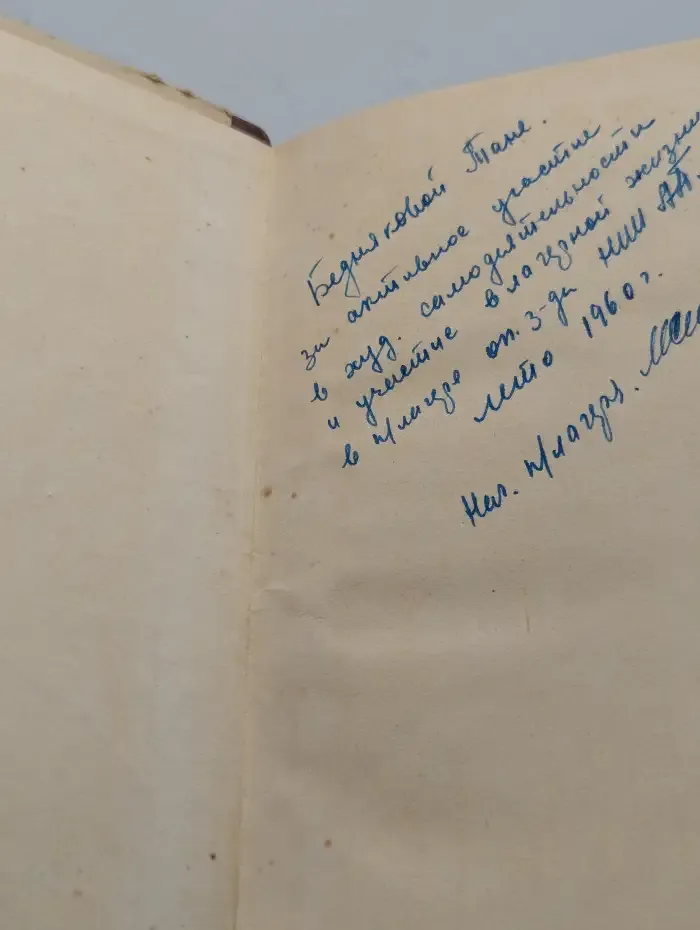 Бедняковой Тане.
за активное участие
в худ. самодеятельности
и участие в лагерной жизни
в п/лагере оп. з-да НИИ
лето 1960 г.
Нач. п/лагеря.